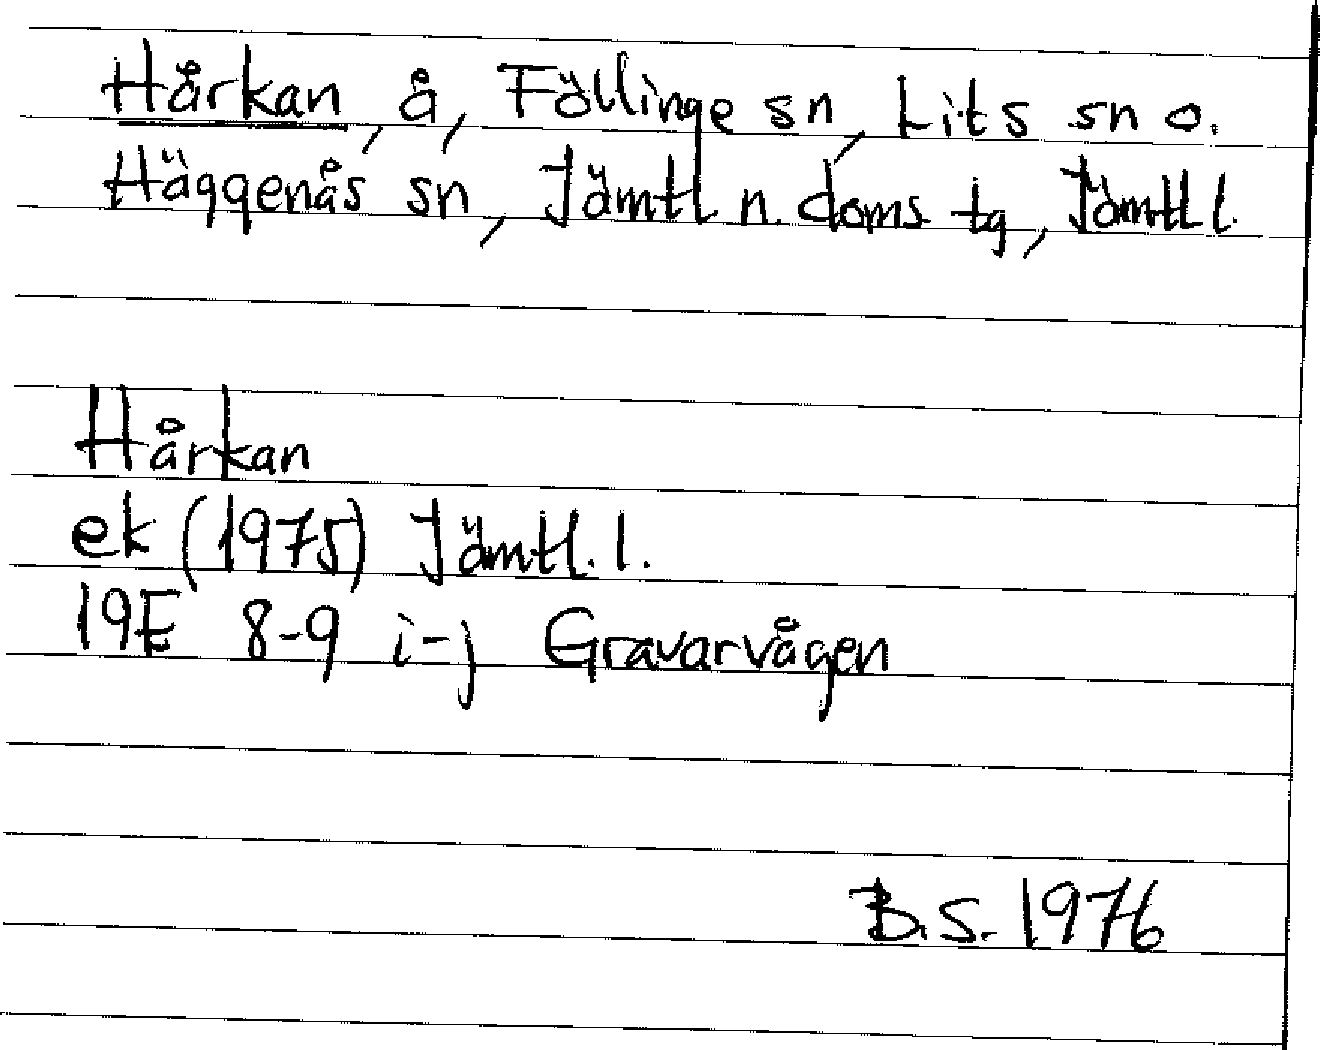 Hårkan, å, Föllinge sn, Lits sn o.
Häggenås sn, Jämtl n. doms tg, Jämtl l.
Hårkan
ek (1975) Jämtl. l.
19E 8-9 i-j Gravarvågen
B.S. 1976